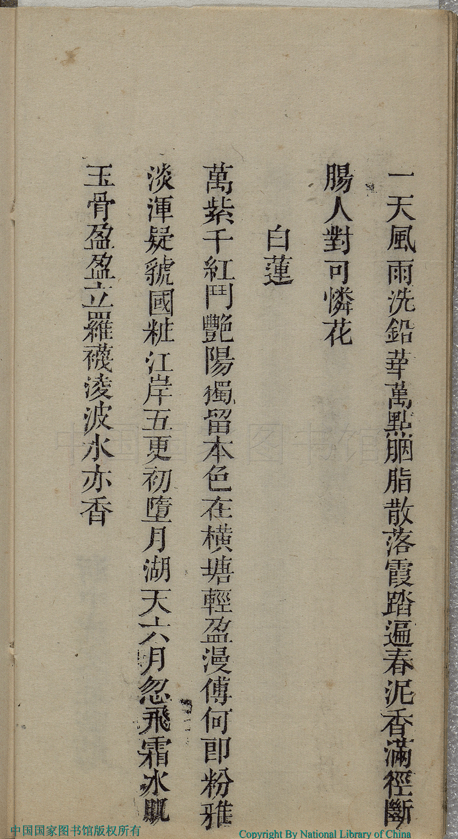 一天風雨洗鉛華萬點胭脂散落霞踏遍春泥香滿徑斷
腸人對可憐花
白蓮
萬紫千紅鬥艷陽獨留本色在橫塘輕盈漫傅何郎粉雅
淡渾疑虢國粧江岸五更初墮月湖天六月忽飛霜冰肌
玉骨盈盈立羅襪淩波水亦香
中国国家图书馆版权所有
Copyright By National Library of China